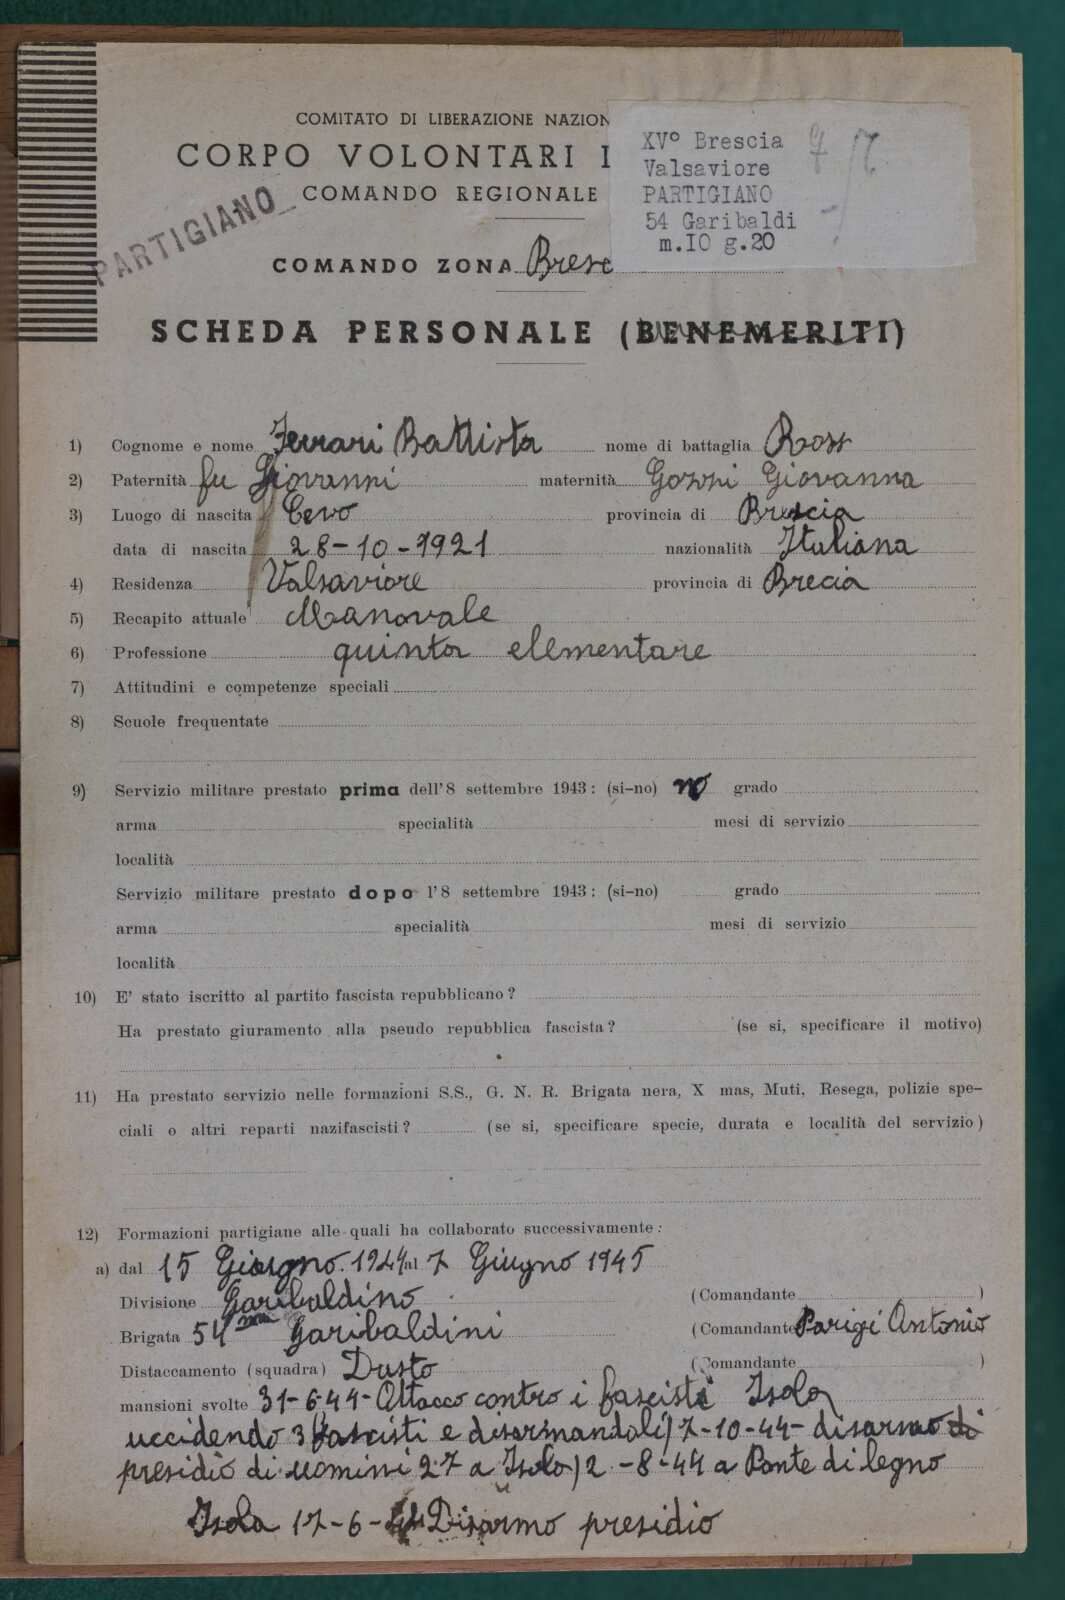 COMITATO DI LIBERAZIONE NAZION
CORPO VOLONTARI
COMANDO REGIONALE
XV° Brescia
Valsaviore
PARTIGIANO
54 Garibaldi
m.IO g.20
PARTIGIANO
COMANDO ZONA Bresc
SCHEDA PERSONALE (BENEMERITI)
1) Cognome e nome Ferrari Battista nome di battaglia Ross
2) Paternità fu Giovanni maternità Gozzi Giovanna
3) Luogo di nascita Cevo provincia di Brescia
data di nascita 28-10-1921 nazionalità Italiana
4) Residenza Valsaviore provincia di Brecia
5) Recapito attuale Manovale
6) Professione quinta elementare
7) Attitudini e competenze speciali
8) Scuole frequentate
9) Servizio militare prestato prima dell'8 settembre 1943: (si-no) no grado
arma specialità mesi di servizio
località
Servizio militare prestato dopo l'8 settembre 1943: (si-no) grado
arma specialità mesi di servizio
località
10) E' stato iscritto al partito fascista repubblicano?
Ha prestato giuramento alla pseudo repubblica fascista? (se si, specificare il motivo)
11) Ha prestato servizio nelle formazioni S.S., G. N. R. Brigata nera, X mas, Muti, Resega, polizie spe-
ciali o altri reparti nazifascisti? (se si, specificare specie, durata e località del servizio)
12) Formazioni partigiane alle quali ha collaborato successivamente:
a) dal 15 Giugno 1944 al 7 Giugno 1945
Divisione Garibaldino (Comandante )
Brigata 54ma Garibaldini (Comandante Parigi Antonio
Distaccamento (squadra) Dusto (Comandante )
mansioni svolte 31-6-44- Attacco contro i fascisti Isola
uccidendo 3 fascisti e disarmandoli) 7-10-44- disarmo di
presidio di uomini 27 a Isola) 2-8-44 a Ponte di legno
Isola 17-6-44 Disarmo presidio